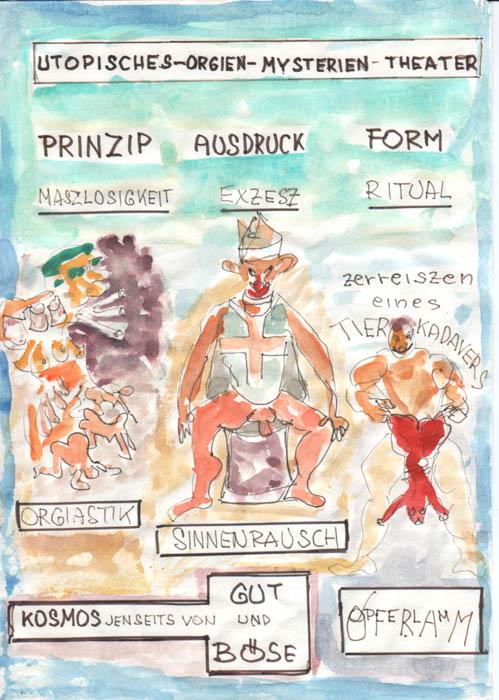 UTOPISCHES-ORGIEN-MYSTERIEN-THEATER
PRINZIP AUSDRUCK FORM
MASZLOSIGKEIT EXZESZ RITUAL
zerreiszen
eines
TIERKADAVERS
ORGIASTIK
SINNENRAUSCH
KOSMOS JENSEITS VON
GUT
UND
BÖSE
OPFERLAMM